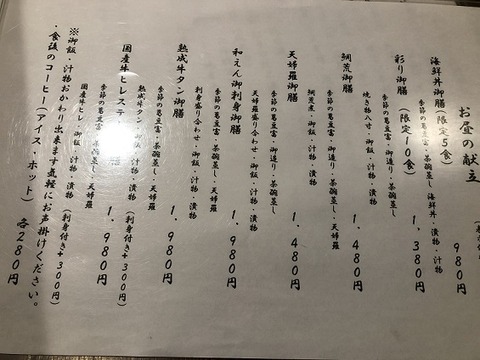 お昼の献立
海鮮丼御膳(限定5食) 980円
季節の葛豆富・茶碗蒸し 海鮮丼・漬物・汁物
彩り御膳(限定10食) 1,380円
季節の葛豆富・御造り・茶碗蒸し
焼き物八寸・御飯・汁物・漬物
鯛荒御膳 1,480円
季節の葛豆富・御造り・茶碗蒸し・天婦羅
鯛荒煮・御飯・汁物・漬物
天婦羅御膳 1,480円
季節の葛豆富・御造り・茶碗蒸し
天婦羅盛り合わせ・御飯・汁物・漬物
和えん御刺身御膳 1,980円
季節の葛豆富・茶碗蒸し・天婦羅
刺身盛り合わせ・御飯・汁物・漬物
熟成牛タン御膳 1,980円
季節の葛豆富・茶碗蒸し・天婦羅
熟成牛タン・御飯・汁物・漬物(刺身付き+300円)
国産牛ヒレステ 膳 1,980円
季節の葛豆 ・茶碗蒸し・天婦羅
国産牛ヒレ 御飯・汁物・漬物(刺身付き+300円)
※御飯・汁物おかわり出来ます気軽にお声掛けください。
・食後のコーヒー(アイス・ホット) 各280円